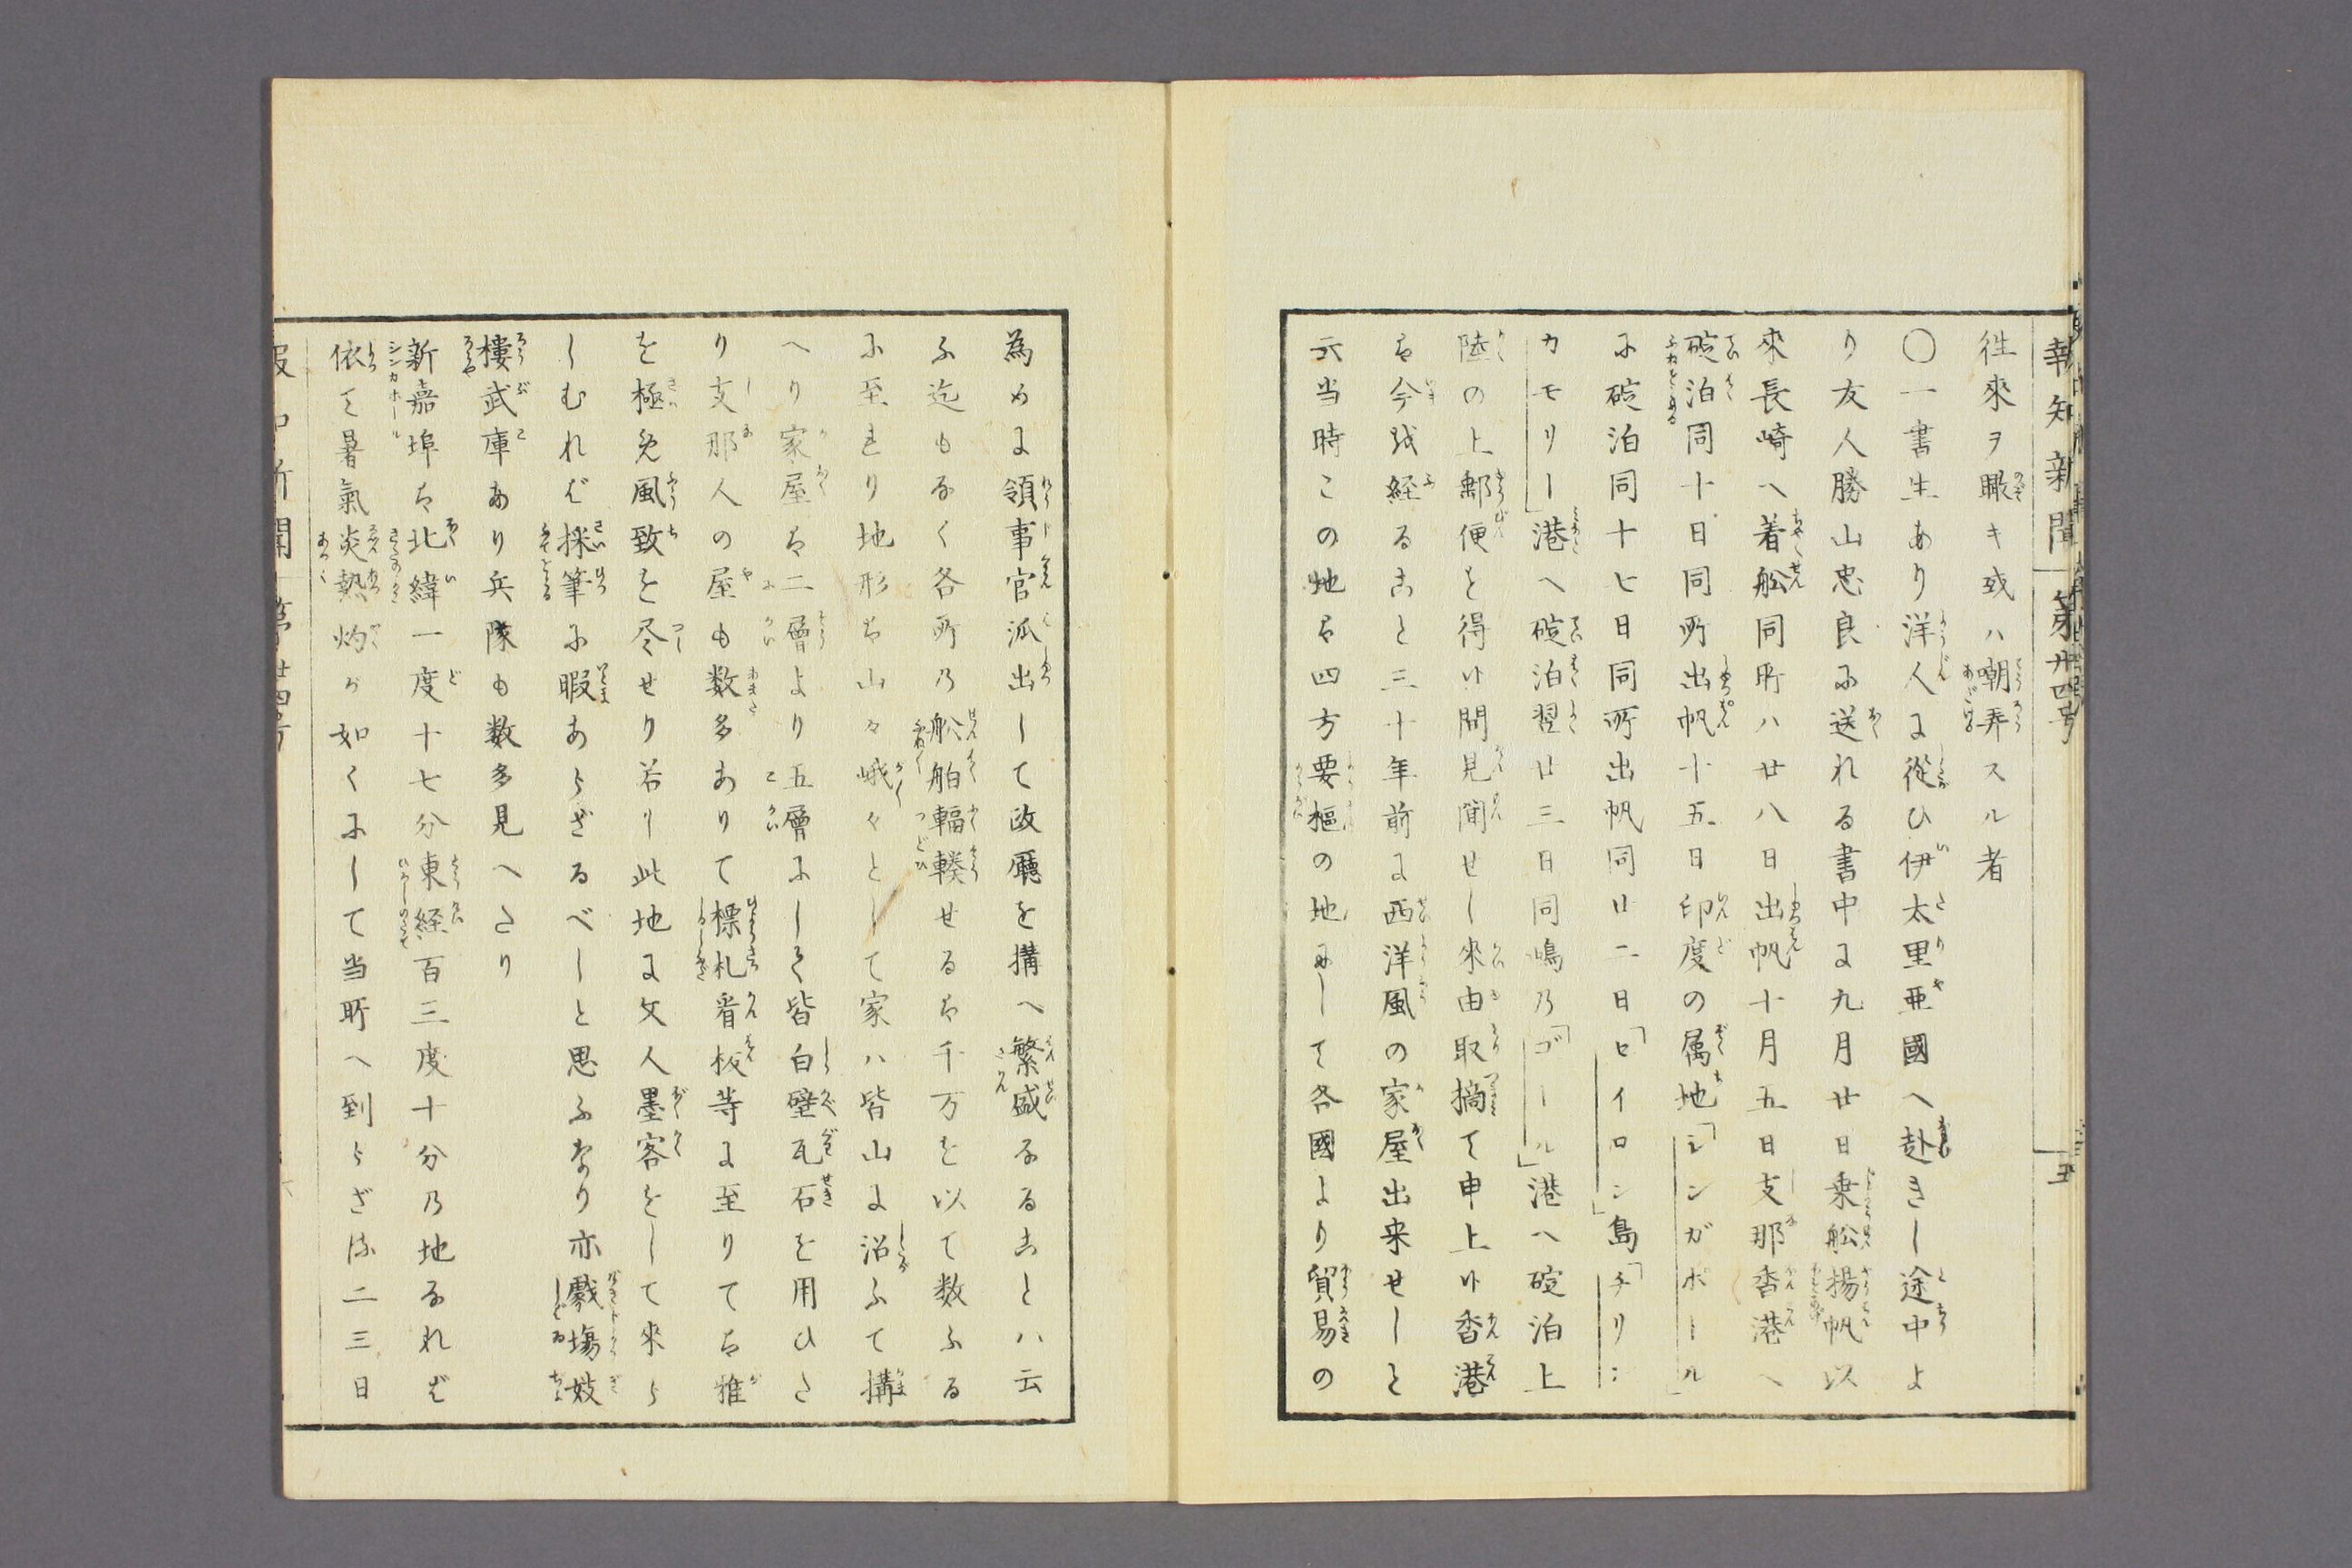 報知新聞 第廿四号 五
徃來ヲ瞰キ或ハ嘲弄スル者
〇一書生あり洋人に從ひ伊太里亜國へ赴きし途中よ
り友人勝山忠良に送れる書中に九月廿日乗舩揚帆以
來長崎へ着舩同所ハ廿八日出帆十月五日支那香港へ
碇泊同十日同所出帆十五日印度の属地「シンガポール」
に碇泊同十七日同所出帆同廿二日「セイロン」島「チリン
カモリー」港へ碇泊翌廿三日同嶋乃「ゴール」港へ碇泊上
陸の上郵便を得候間見聞せし來由取摘て申上候香港
は今を経ること三十年前に西洋風の家屋出来せしと
云当時この地は四方要樞の地にして各國より貿易の
為めに領事官派出して政廳を搆へ繁盛なることハ云
ふ迄もなく各所乃舩舶輻輳せるは千万を以て数ふる
に至れり地形は山々峨々として家ハ皆山に沿ふて搆
へり家屋は二層より五層にして皆白壁瓦石を用ひた
り支那人の屋も数多ありて標札看板等に至りては雅
を極免風致を尽せり若し此地に文人墨客をして來ら
しむれば採筆に暇あらざるべしと思ふなり亦戲塲妓
樓武庫あり兵隊も数多見へたり
新嘉埠は北緯一度十七分東経百三度十分乃地なれば
依て暑氣炎熱灼が如くにして当所へ到らざる二三日